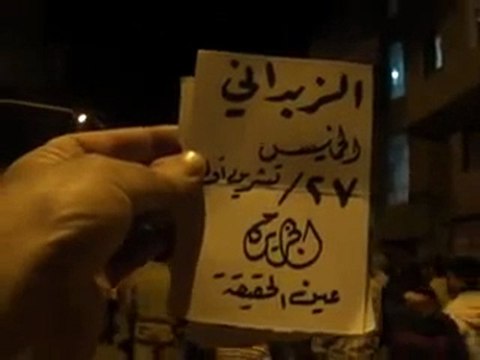 الزبداني
الخميس
٢٧/ تشرين أول
الجزيرة
عين الحقيقة